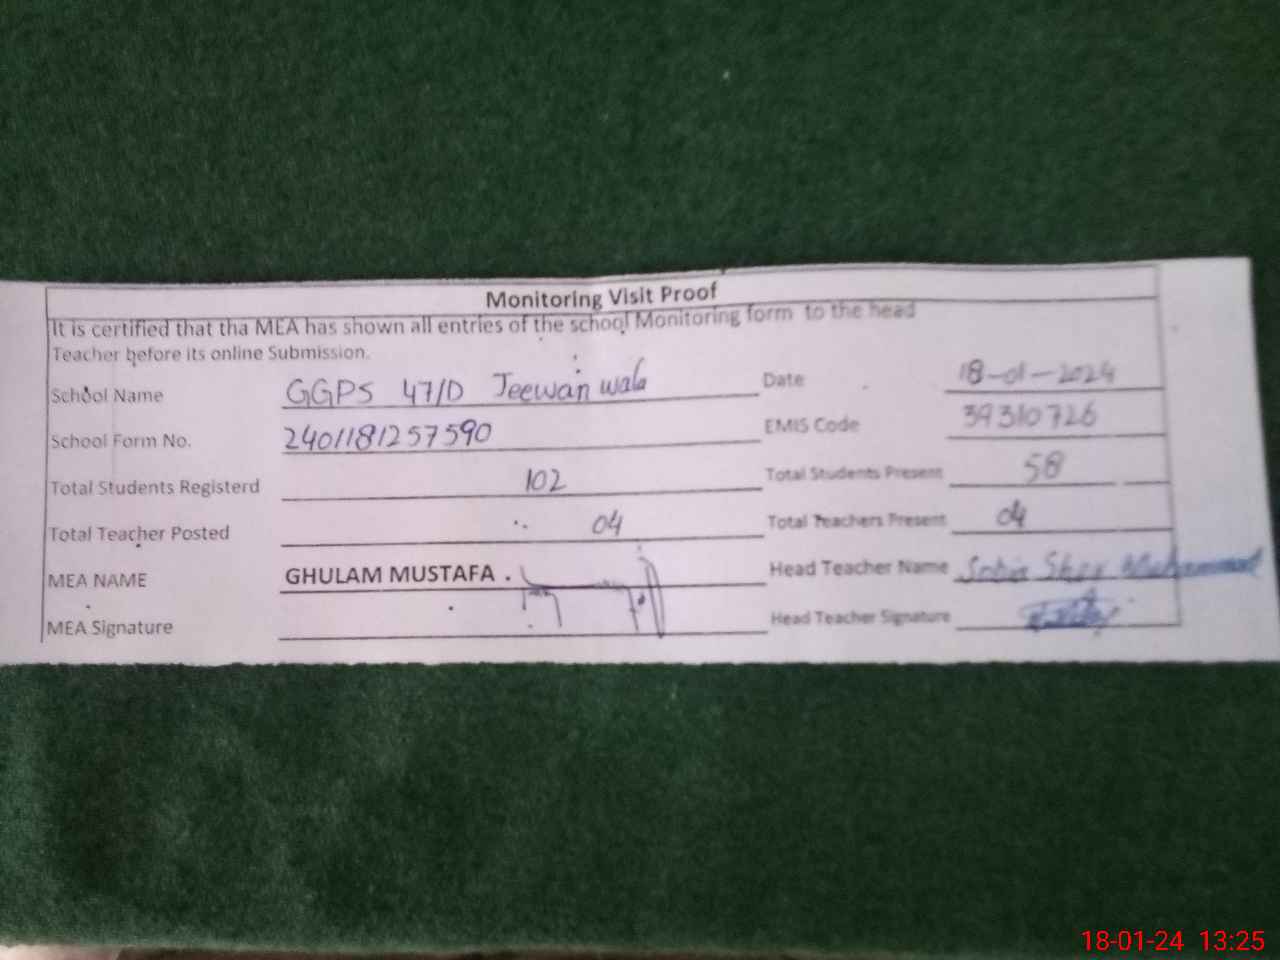 Monitoring Visit Proof
It is certified that tha MEA has shown all entries of the school Monitoring form to the head
Teacher before its online Submission.
School Name GGPS 47/D Jeewan wala Date 18-01-2024
School Form No. 2401181257590 EMIS Code 39310726
Total Students Registerd 102 Total Students Present 58
Total Teacher Posted 04 Total Teachers Present 04
MEA NAME GHULAM MUSTAFA . Head Teacher Name Sobia Sher Muhammad
MEA Signature Head Teacher Signature
18-01-24 13:25